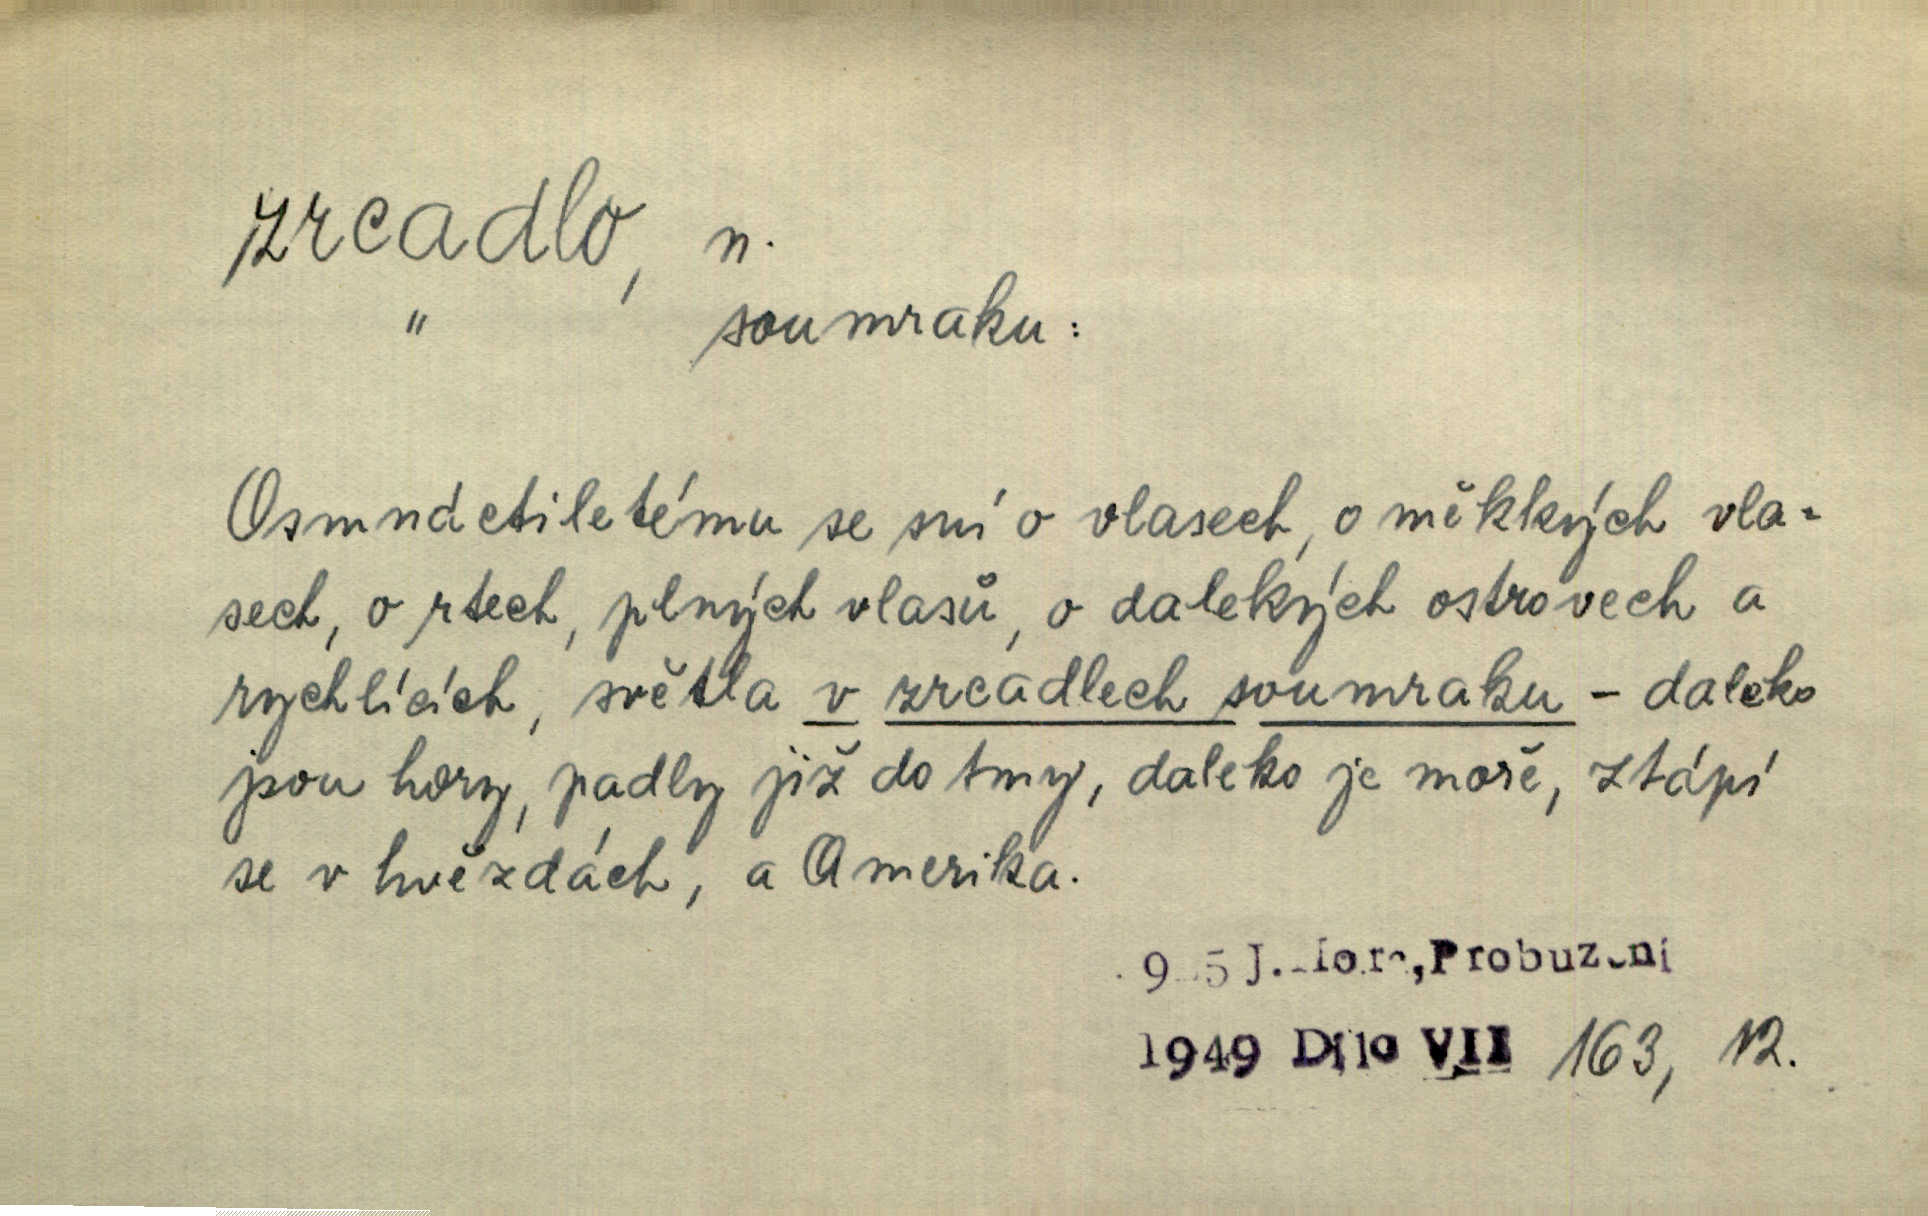 zrcadlo, n.
" soumraku:
Osmnáctiletému se sní o vlasech, o měkkých vla=
sech, o rtech, plných vlasů, o dalekých ostrovech a
rychlících, světla v zrcadlech soumraku - daleko
jsou hory, padly již do tmy, daleko je moře, ztápí
se v hvězdách, a Amerika.
J. Probuzení
1949 Dílo VII 163, 12.